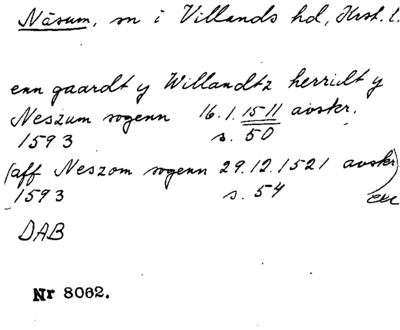 Näsum, sn i Villands hd, Krst. l.
enn gaardt y Willandtz herridt y
Neszum sogenn 16.1.1511 avskr.
1593 s. 50
(aff Neszom sogenn 29.12.1521 avskr)
1593 s. 54
DAB
Nr 8062.